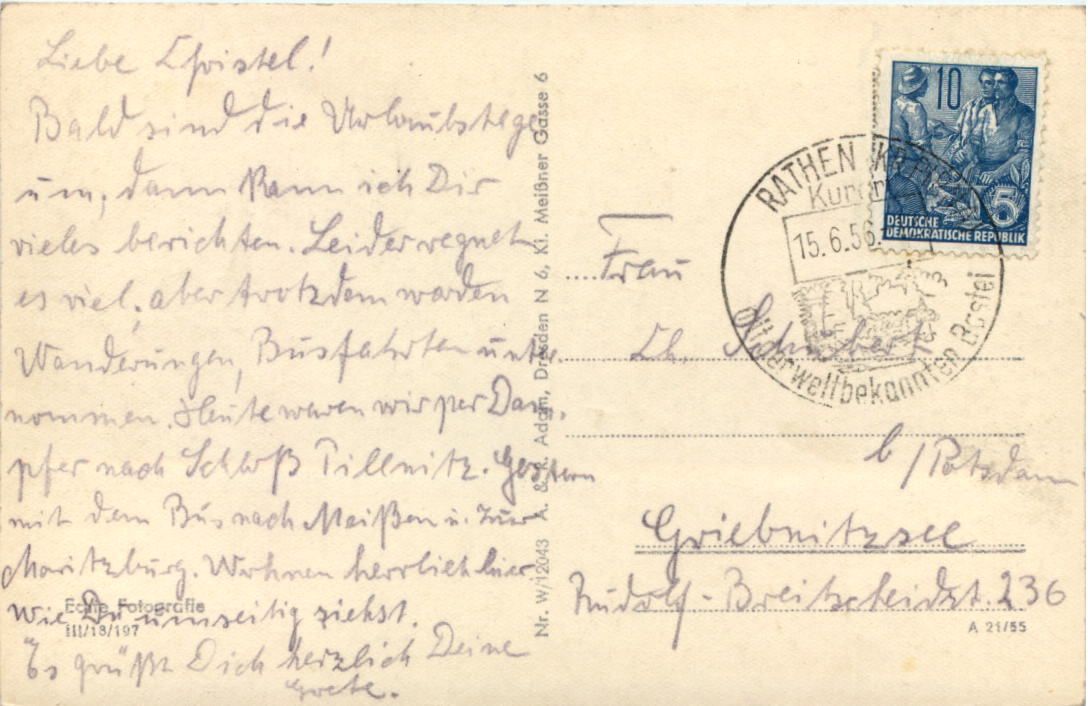 Liebe Christel!
Bald sind die Urlaubstage
um, dann kann ich Dir
vieles berichten. Leider regnet
es viel, aber trotzdem werden
Wanderungen, Busfahrten unter-
nommen. Heute waren wir per Dam-
pfer nach Schloß Pillnitz. Gestern
mit dem Bus nach Meißen u. zur
Moritzburg. Wohnen herrlich hier
wie Du umseitig siehst.
Es grüßt Dich herzlich Deine
Grete.
Echte Fotografie
III/18/197
Nr. W/12043 A. & R. Adam, Dresden N 6, Kl. Meißner Gasse 6
10
5
DEUTSCHE
DEMOKRATISCHE REPUBLIK
RATHEN
15.6.56
mit der weltbekannten Bastei
Frau
Ch. Schubert
b/Potsdam
Griebnitzsee
Rudolf-Breitscheidst. 236
A 21/55